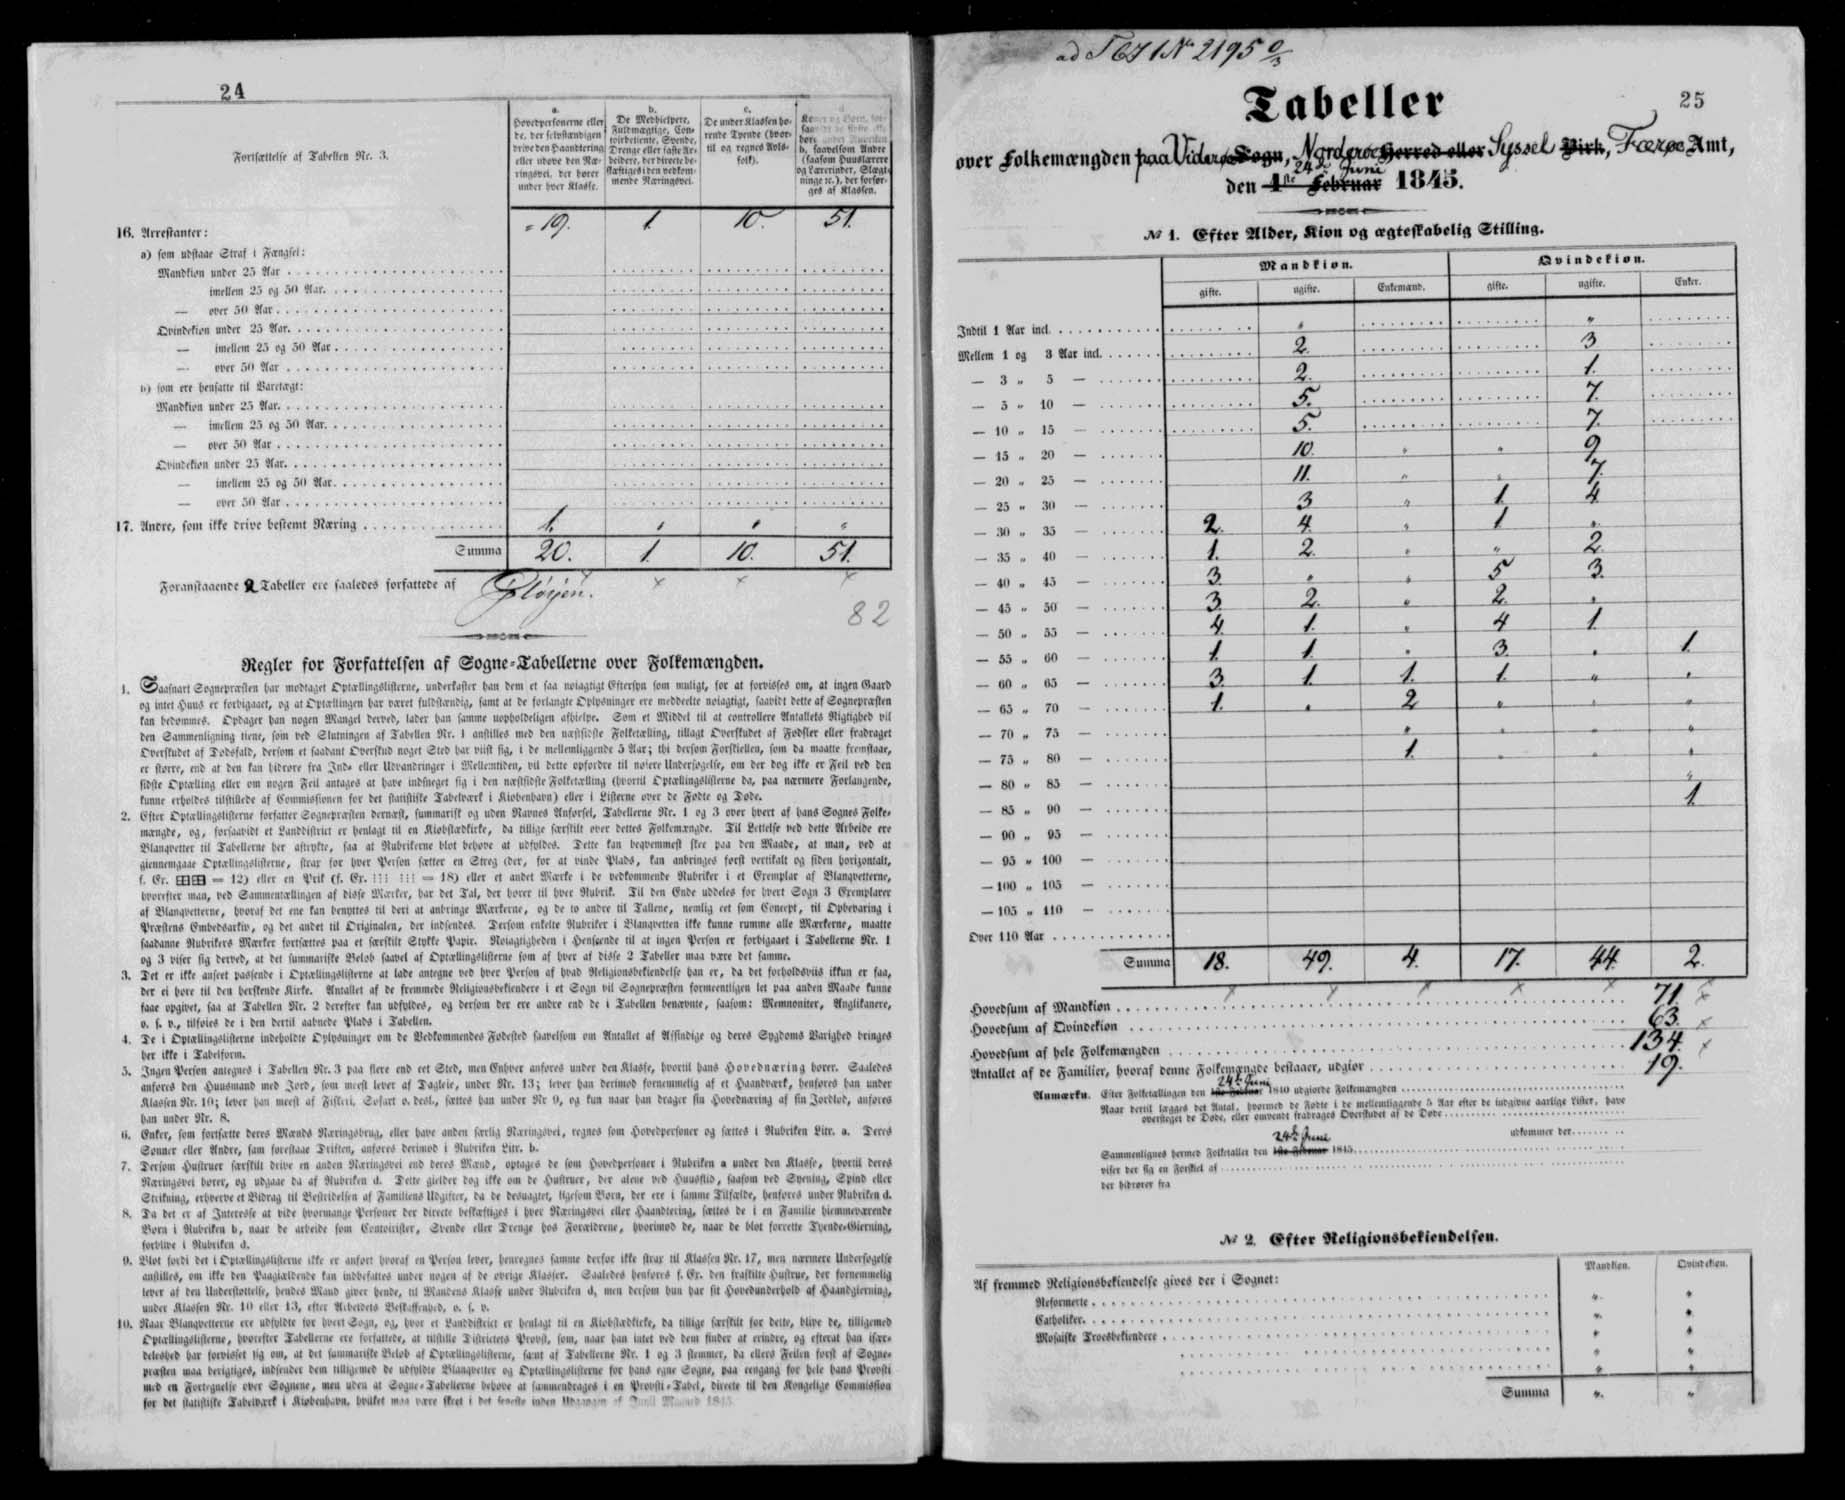 24
Fortsættelse af Tabellen Nr. 3.
a.
Hovedpersonerne eller de, der selvstændigen drive den Haandtering eller udøve den Næringsvei, der hører under hver Klasse.
b.
De Medhielpere, Fuldmægtige, Contoirbetiente, Svende, Drenge eller faste Arbeidere, der directe beskæftiges i den vedkommende Næringsvei.
c.
De under Klassen hørende Tyende (hvortil og regnes Avlsfolk).
b, saavelsom Andre (saasom Huuslærere og Lærerinder, Slægtninge ꝛc.), der forsørges af Klassen.
„ 19. 1 10. 51.
16. Arrestanter:
a) som udstaae Straf i Fængsel:
Mandkiøn under 25 Aar
imellem 25 og 50 Aar.
— over 50 Aar
Qvindekiøn under 25 Aar.
— imellem 25 og 50 Aar
— over 50 Aar
b) som ere hensatte til Varetægt:
Mandkiøn under 25 Aar.
— imellem 25 og 50 Aar.
— over 50 Aar
Qvindekiøn under 25 Aar.
— imellem 25 og 50 Aar.
— over 50 Aar
17. Andre, som ikke drive bestemt Næring 1. „ „ „
Summa 20. 1 10. 51.
Foranstaaende 2 Tabeller ere saaledes forfattede af
82
Regler for Forfattelsen af Sogne-Tabellerne over Folkemængden.
1. Saasnart Sognepræsten har modtaget Optællingslisterne, underkaster han dem et saa nøiagtigt Eftersyn som muligt, for at forvisses om, at ingen Gaard
og intet Huus er forbigaaet, og at Optællingen har været fuldstændig, samt at de forlangte Oplysninger ere meddeelte nøiagtigt, saavidt dette af Sognepræsten
kan bedømmes. Opdager han nogen Mangel derved, lader han samme uopholdeligen afhielpe. Som et Middel til at controllere Antallets Rigtighed vil
den Sammenligning tiene, som ved Slutningen af Tabellen Nr. 1 anstilles med den næstsidste Folketælling, tillagt Overskudet af Fødsler eller fradraget
Overskudet af Dødsfald, dersom et saadant Overskud noget Sted har viist sig, i de mellemliggende 5 Aar; thi dersom Forskiellen, som da maatte fremstaae,
er større, end at den kan hidrøre fra Ind- eller Udvandringer i Mellemtiden, vil dette opfordre til nøiere Undersøgelse, om der dog ikke er Feil ved den
sidste Optælling eller om nogen Feil antages at have indsneget sig i den næstsidste Folketælling (hvortil Optællingslisterne da, paa nærmere Forlangende,
kunne erholdes tilstillede af Commissionen for det statistiske Tabelværk i Kiøbenhavn) eller i Listerne over de Fødte og Døde.
2. Efter Optællingslisterne forfatter Sognepræsten dernæst, summarisk og uden Navnes Anførsel, Tabellerne Nr. 1 og 3 over hvert af hans Sognes Folkemængde, og, forsaavidt et Landdistrict er henlagt til en Kiøbstædkirke, da tillige særskilt over dettes Folkemængde. Til Lettelse ved dette Arbeide ere
Blanqvetter til Tabellerne her aftrykte, saa at Rubrikerne blot behøve at udfyldes. Dette kan beqvemmest skee paa den Maade, at man, ved at
giennemgaae Optællingslisterne, strax for hver Person sætter en Streg (der, for at vinde Plads, kan anbringes først vertikalt og siden horizontalt,
f. Ex. ⊞⊞ = 12) eller en Prik (f. Ex. ⁝⁝⁝ ⁝⁝⁝ = 18) eller et andet Mærke i de vedkommende Rubriker i et Exemplar af Blanqvetterne,
hvorefter man, ved Sammentællingen af disse Mærker, har det Tal, der hører til hver Rubrik. Til den Ende uddeles for hvert Sogn 3 Exemplarer
af Blanqvetterne, hvoraf det ene kan benyttes til deri at anbringe Mærkerne, og de to andre til Tallene, nemlig eet som Concept, til Opbevaring i
Præstens Embedsarkiv, og det andet til Originalen, der indsendes. Dersom enkelte Rubriker i Blanqvetten ikke kunne rumme alle Mærkerne, maatte
saadanne Rubrikers Mærker fortsættes paa et særskilt Stykke Papir. Nøiagtigheden i Henseende til at ingen Person er forbigaaet i Tabellerne Nr. 1
og 3 viser sig derved, at det summariske Beløb saavel af Optællingslisterne som af hver af disse 2 Tabeller maa være det samme.
3. Det er ikke anseet passende i Optællingslisterne at lade antegne ved hver Person af hvad Religionsbekiendelse han er, da det forholdsviis ikkun er faa,
der ei høre til den herskende Kirke. Antallet af de fremmede Religionsbekiendere i et Sogn vil Sognepræsten formeentligen let paa anden Maade kunne
faae opgivet, saa at Tabellen Nr. 2 derefter kan udfyldes, og dersom der ere andre end de i Tabellen benævnte, saasom: Memnoniter, Anglikanere,
o. s. v., tilføies de i den dertil aabnede Plads i Tabellen.
4. De i Optællingslisterne indeholdte Oplysninger om de Vedkommendes Fødested saavelsom om Antallet af Afsindige og deres Sygdoms Varighed bringes
her ikke i Tabelform.
5. Ingen Person antegnes i Tabellen Nr. 3 paa flere end eet Sted, men Enhver anføres under den Klasse, hvortil hans Hovednæring hører. Saaledes
anføres den Huusmand med Jord, som meest lever af Dagleie, under Nr. 13; lever han derimod fornemmelig af et Haandværk, henføres han under
Klassen Nr. 10; lever han meest af Fiskeri, Søfart o. desl., sættes han under Nr 9, og kun naar han drager sin Hovednæring af sin Jordlod, anføres
han under Nr. 8.
6. Enker, som fortsætte deres Mænds Næringsbrug, eller have anden særlig Næringsvei, regnes som Hovedpersoner og sættes i Rubriken Litr. a. Deres
Sønner eller Andre, som forestaae Driften, anføres derimod i Rubriken Litr. b.
7. Dersom Hustruer særskilt drive en anden Næringsvei end deres Mænd, optages de som Hovedpersoner i Rubriken a under den Klasse, hvortil deres
Næringsvei hører, og udgaae da af Rubriken d. Dette gielder dog ikke om de Hustruer, der alene ved Huusflid, saasom ved Syening, Spind eller
Strikning, erhverve et Bidrag til Bestridelsen af Familiens Udgifter, da de desuagtet, ligesom Børn, der ere i samme Tilfælde, henføres under Rubriken d.
8. Da det er af Interesse at vide hvormange Personer der directe beskæftiges i hver Næringsvei eller Haandtering, sættes de i en Familie hiemmeværende
Børn i Rubriken b, naar de arbeide som Contoirister, Svende eller Drenge hos Forældrene, hvorimod de, naar de blot forrette Tyende-Gierning,
forblive i Rubriken d.
9. Blot fordi det i Optællingslisterne ikke er anført hvoraf en Person lever, henregnes samme derfor ikke strax til Klassen Nr. 17, men nærmere Undersøgelse
anstilles, om ikke den Paagiældende kan indbefattes under nogen af de øvrige Klasser. Saaledes henføres f. Ex. den fraskilte Hustrue, der fornemmelig
lever af den Understøttelse, hendes Mand giver hende, til Mandens Klasse under Rubriken d, men dersom hun har sit Hovedunderhold af Haandgierning,
under Klassen Nr. 10 eller 13, efter Arbeidets Beskaffenhed, o. s. v.
10. Naar Blanqvetterne ere udfyldte for hvert Sogn, og, hvor et Landdistrict er henlagt til en Kiøbstædkirke, da tillige særskilt for dette, blive de, tilligemed
Optællingslisterne, hvorefter Tabellerne ere forfattede, at tilstille Districtets Provst, som, naar han intet ved dem finder at erindre, og efterat han især-
deleshed har forvisset sig om, at det summariske Beløb af Optællingslisterne, samt af Tabellerne Nr. 1 og 3 stemmer, da ellers Feilen først af Sogne-
præsten maa berigtiges, indsender dem tilligemed de udfyldte Blanqvetter og Optællingslisterne for hans egne Sogne, paa eengang for hele hans Provsti
med en Fortegnelse over Sognene, men uden at Sogne-Tabellerne behøve at sammendrages i en Provsti-Tabel, directe til den Kongelige Commission
for det statistiske Tabelværk i Kiøbenhavn, hvilket maa være skeet i det seneste inden Udgangen af
25
Tabeller
over Folkemængden paa Viderø Sogn, Norderøe Herred eller Syssel Birk, Færøe Amt,
24de Juni
den 1ste Februar 1845.
№ 1. Efter Alder, Kiøn og ægteskabelig Stilling.
Mandkiøn. Qvindekiøn.
gifte. ugifte. Enkemænd. gifte. ugifte. Enker.
Indtil 1 Aar incl. „ „
Mellem 1 og 3 Aar incl. 2. 3
— 3 „ 5 — 2. 1.
— 5 „ 10 — 5. 7.
— 10 „ 15 — 5. 7.
— 15 „ 20 — 10. „ „ 9
— 20 „ 25 — 11. „ „ 7.
— 25 „ 30 — 3 „ 1 4
— 30 „ 35 — 2. 4. „ 1 „
— 35 „ 40 — 1. 2. „ „ 2
— 40 „ 45 — 3 „ „ 5 3.
— 45 „ 50 — 3. 2. „ 2. „
— 50 „ 55 — 4. 1. „ 4 1.
— 55 „ 60 — 1. 1. „ 3. „ 1.
— 60 „ 65 — 3. 1. 1. 1. „ „
— 65 „ 70 — 1. „ 2 „ „ „
— 70 „ 75 — „ „ „ „
— 75 „ 80 — 1. „ „ „
— 80 „ 85 — „
— 85 „ 90 — 1.
— 90 „ 95 —
— 95 „ 100 —
— 100 „ 105 —
— 105 „ 110 —
Over 110 Aar
Summa 18. 49. 4. 17. 44. 2.
Hovedsum af Mandkiøn 71.
Hovedsum af Qvindekiøn 63.
Hovedsum af hele Folkemængden 134.
Antallet af de Familier, hvoraf denne Folkemængde bestaaer, udgiør 19.
24de Juni
Anmærkn. Efter Folketællingen den 1ste Februar 1840 udgiorde Folkemængden
Naar dertil lægges det Antal, hvormed de Fødte i de mellemliggende 5 Aar efter de indgivne aarlige Lister, have
oversteget de Døde, eller omvendt fradrages Overskudet af de Døde
udkommer der
24de Juni
Sammenlignes hermed Folketallet den 1ste Februar 1845
viser der sig en Forskiel af
der hidrører fra
№ 2. Efter Religionsbekiendelsen.
Mandkiøn. Qvindekiøn.
Af fremmed Religionsbekiendelse gives der i Sognet:
Reformerte „ „
Catholiker. „ „
Mosaiske Troesbekiendere „ „
„ „
„ „
Summa „ „